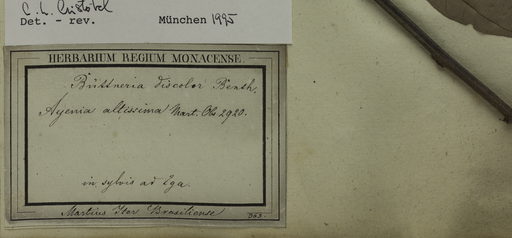 C. L. Cristóbal
Det. - rev. München 1995
HERBARIUM REGIUM MONACENSE
Büttneria discolor Benth.
Ayenia altissima Mart. Obs 2920.
in sylvis ad Ega.
Martius Iter Brasiliense